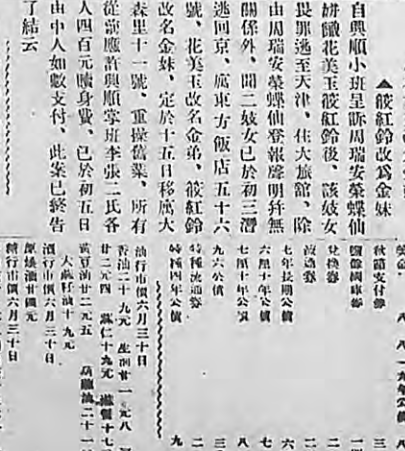 ▲筱紅鈴改爲金妹
自興順小班呈訴周瑞安榮蝶仙
姘識花美玉筱紅鈴後、該妓女
畏罪逃至天津、住大旅館、除
由周瑞安榮蝶仙登報聲明幷無
關係外、聞二妓女已於初三潛
逃回京、寓東方飯店五十六
號、花美玉改名金弟、筱紅鈴
改名金妹、定於十五日移寓大
森里十一號、重操舊業、所有
從前應許興順掌班李張二氏各
人四百元贖身費、已於初五日
由中人如數支付、此案已終告
了結云
九年公債 八
秋節支付券 三
鹽餘國庫券 一
兌換券 二
七年長期公債 六
六厘十年公債 七
七厘十年公債 八
九六公債 三
特種流通券 二
特種四年公債 九
油行市價六月三十日
香油二十九元 生油廿一元八
廿二元四 蘇仁十九元
黃豆油廿二元五
大蔴籽油十九元
酒行市價六月三十日
原燒酒廿四元
糖行市價六月三十日